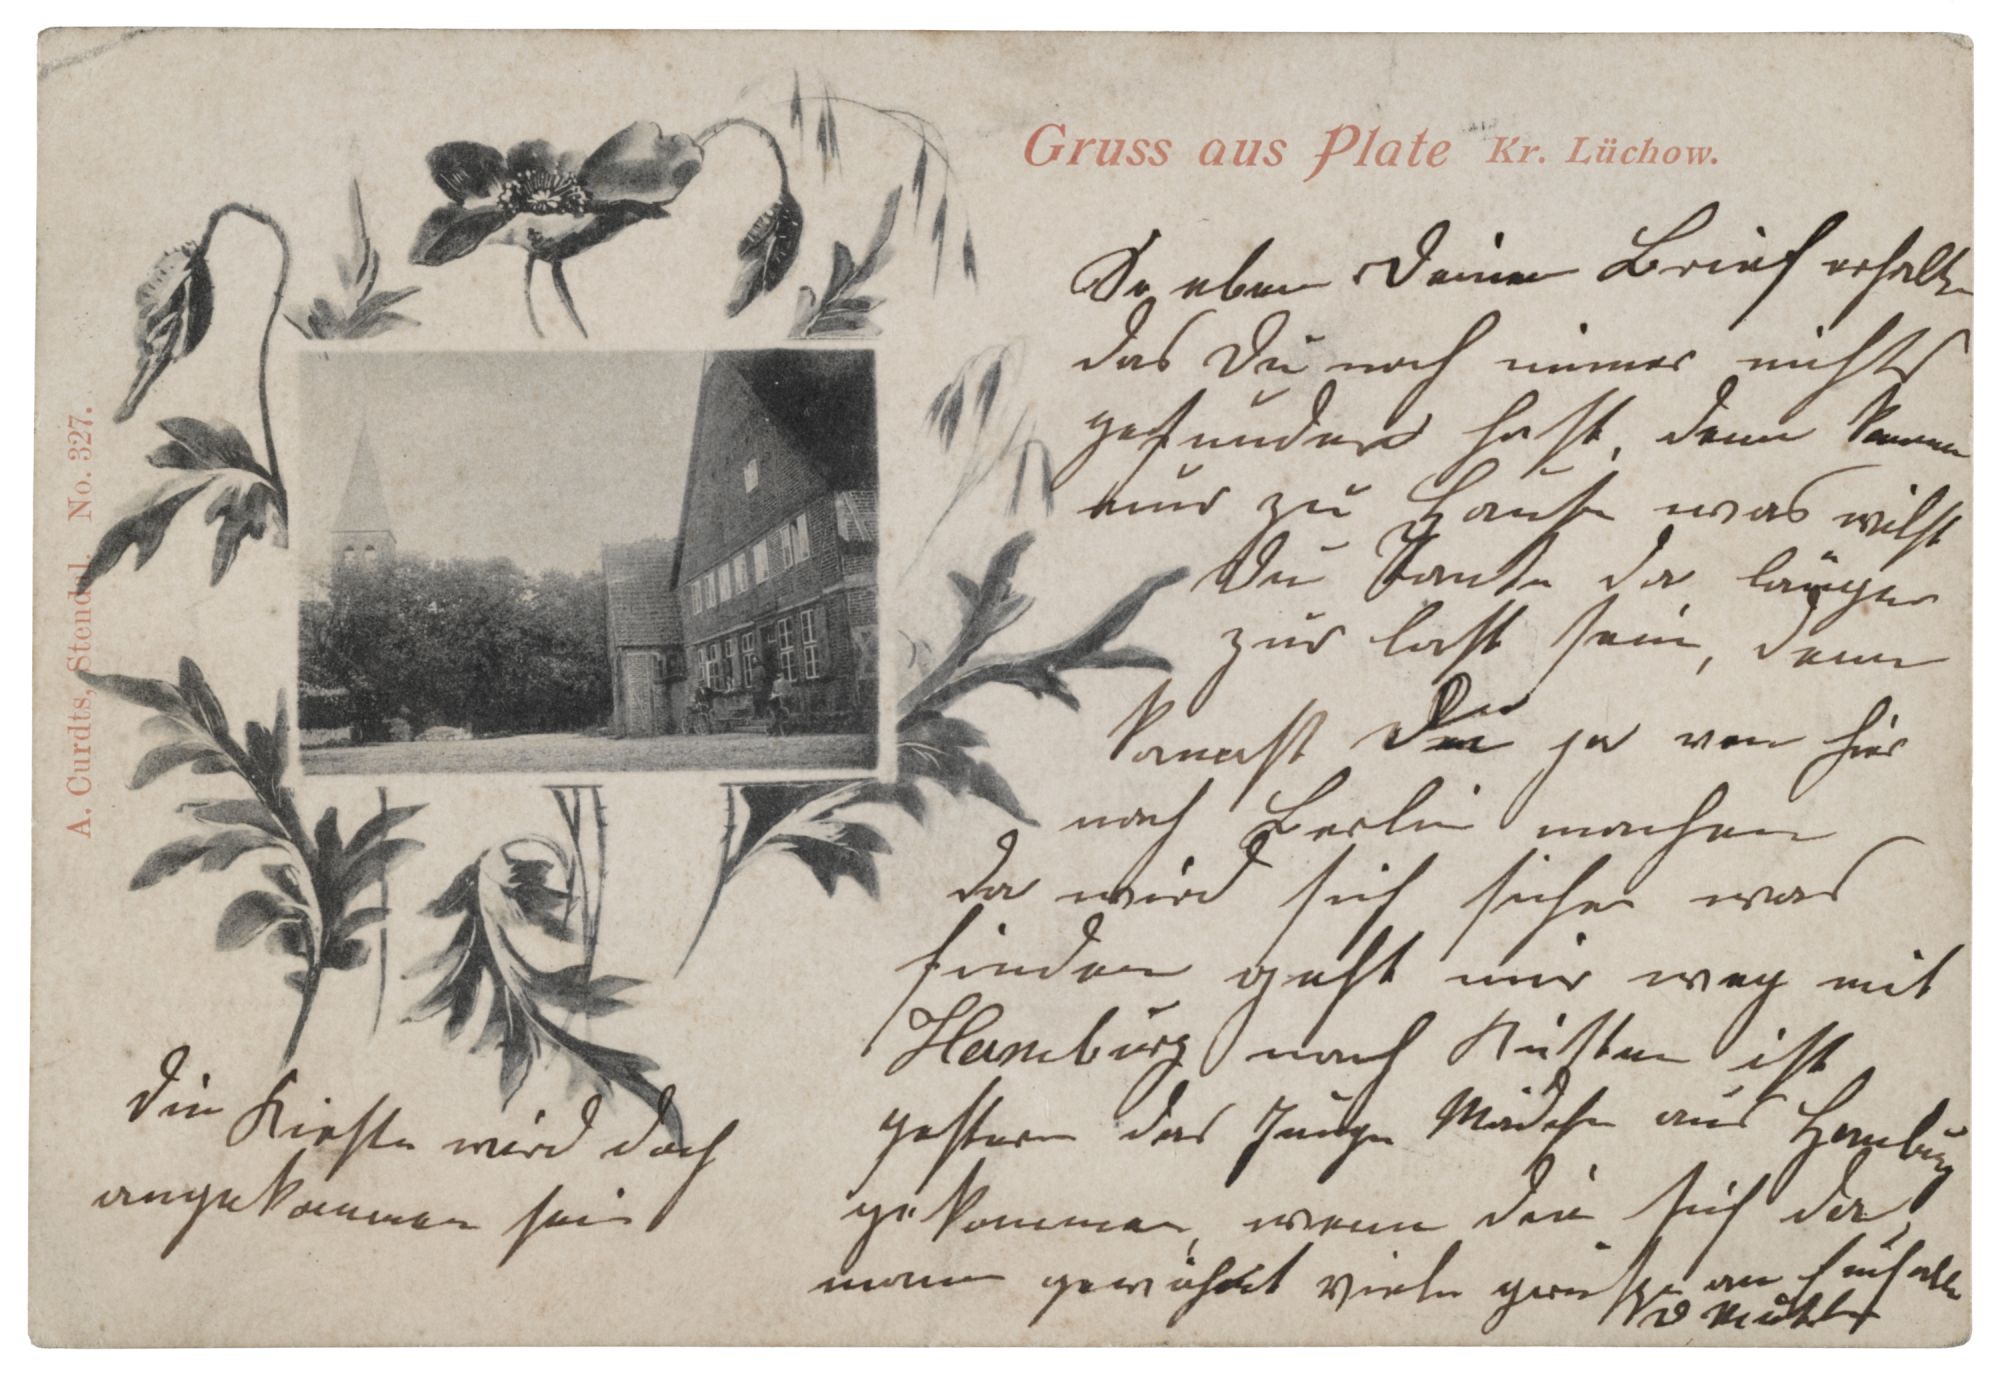 Gruss aus Plate Kr. Lüchow.
So eben Deinen Brief erhalten
das Du noch immer nichts
gefunden hast, denn komm
nur zu Hause was wilst
Du Tante da länger
zur last sein, denn
kannst Du ja von hier
nach Berlin machen
da wird sich sicher was
finden geht mir weg mit
Hamburg nach Küsten ist
gestern das Junge Mädchen aus Hamburg
gekommen, wenn die sich da
man gewöhnt viele grüße an Euch alle
D Mutter
Die Kiste wird doch
angekommen sein
A. Curdts, Stendal. No. 327.